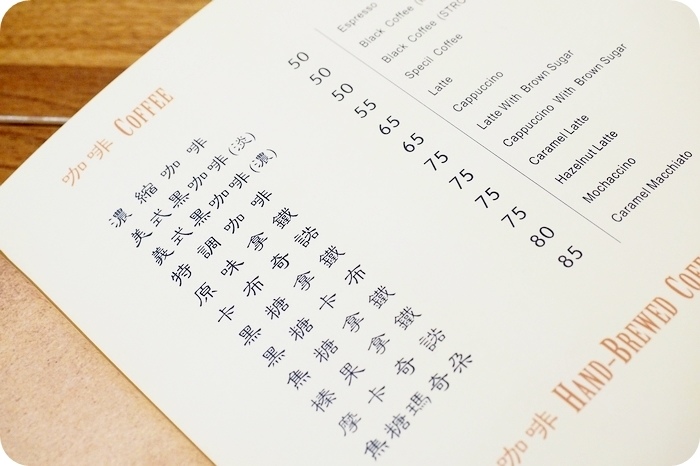 咖啡 COFFEE
濃縮咖啡 50 Espresso
美式黑咖啡(淡) 50 Black Coffee
義式黑咖啡(濃) 50 Black Coffee (STRO
特調咖啡 55 Specil Coffee
原味拿鐵 65 Latte
卡布奇諾 65 Cappuccino
黑糖拿鐵 75 Latte With Brown Sugar
黑糖卡布 75 Cappuccino With Brown Sugar
焦糖拿鐵 75 Caramel Latte
榛果拿鐵 75 Hazelnut Latte
摩卡奇諾 80 Mochaccino
焦糖瑪奇朵 85 Caramel Macchiato
咖啡 HAND-BREWED COF